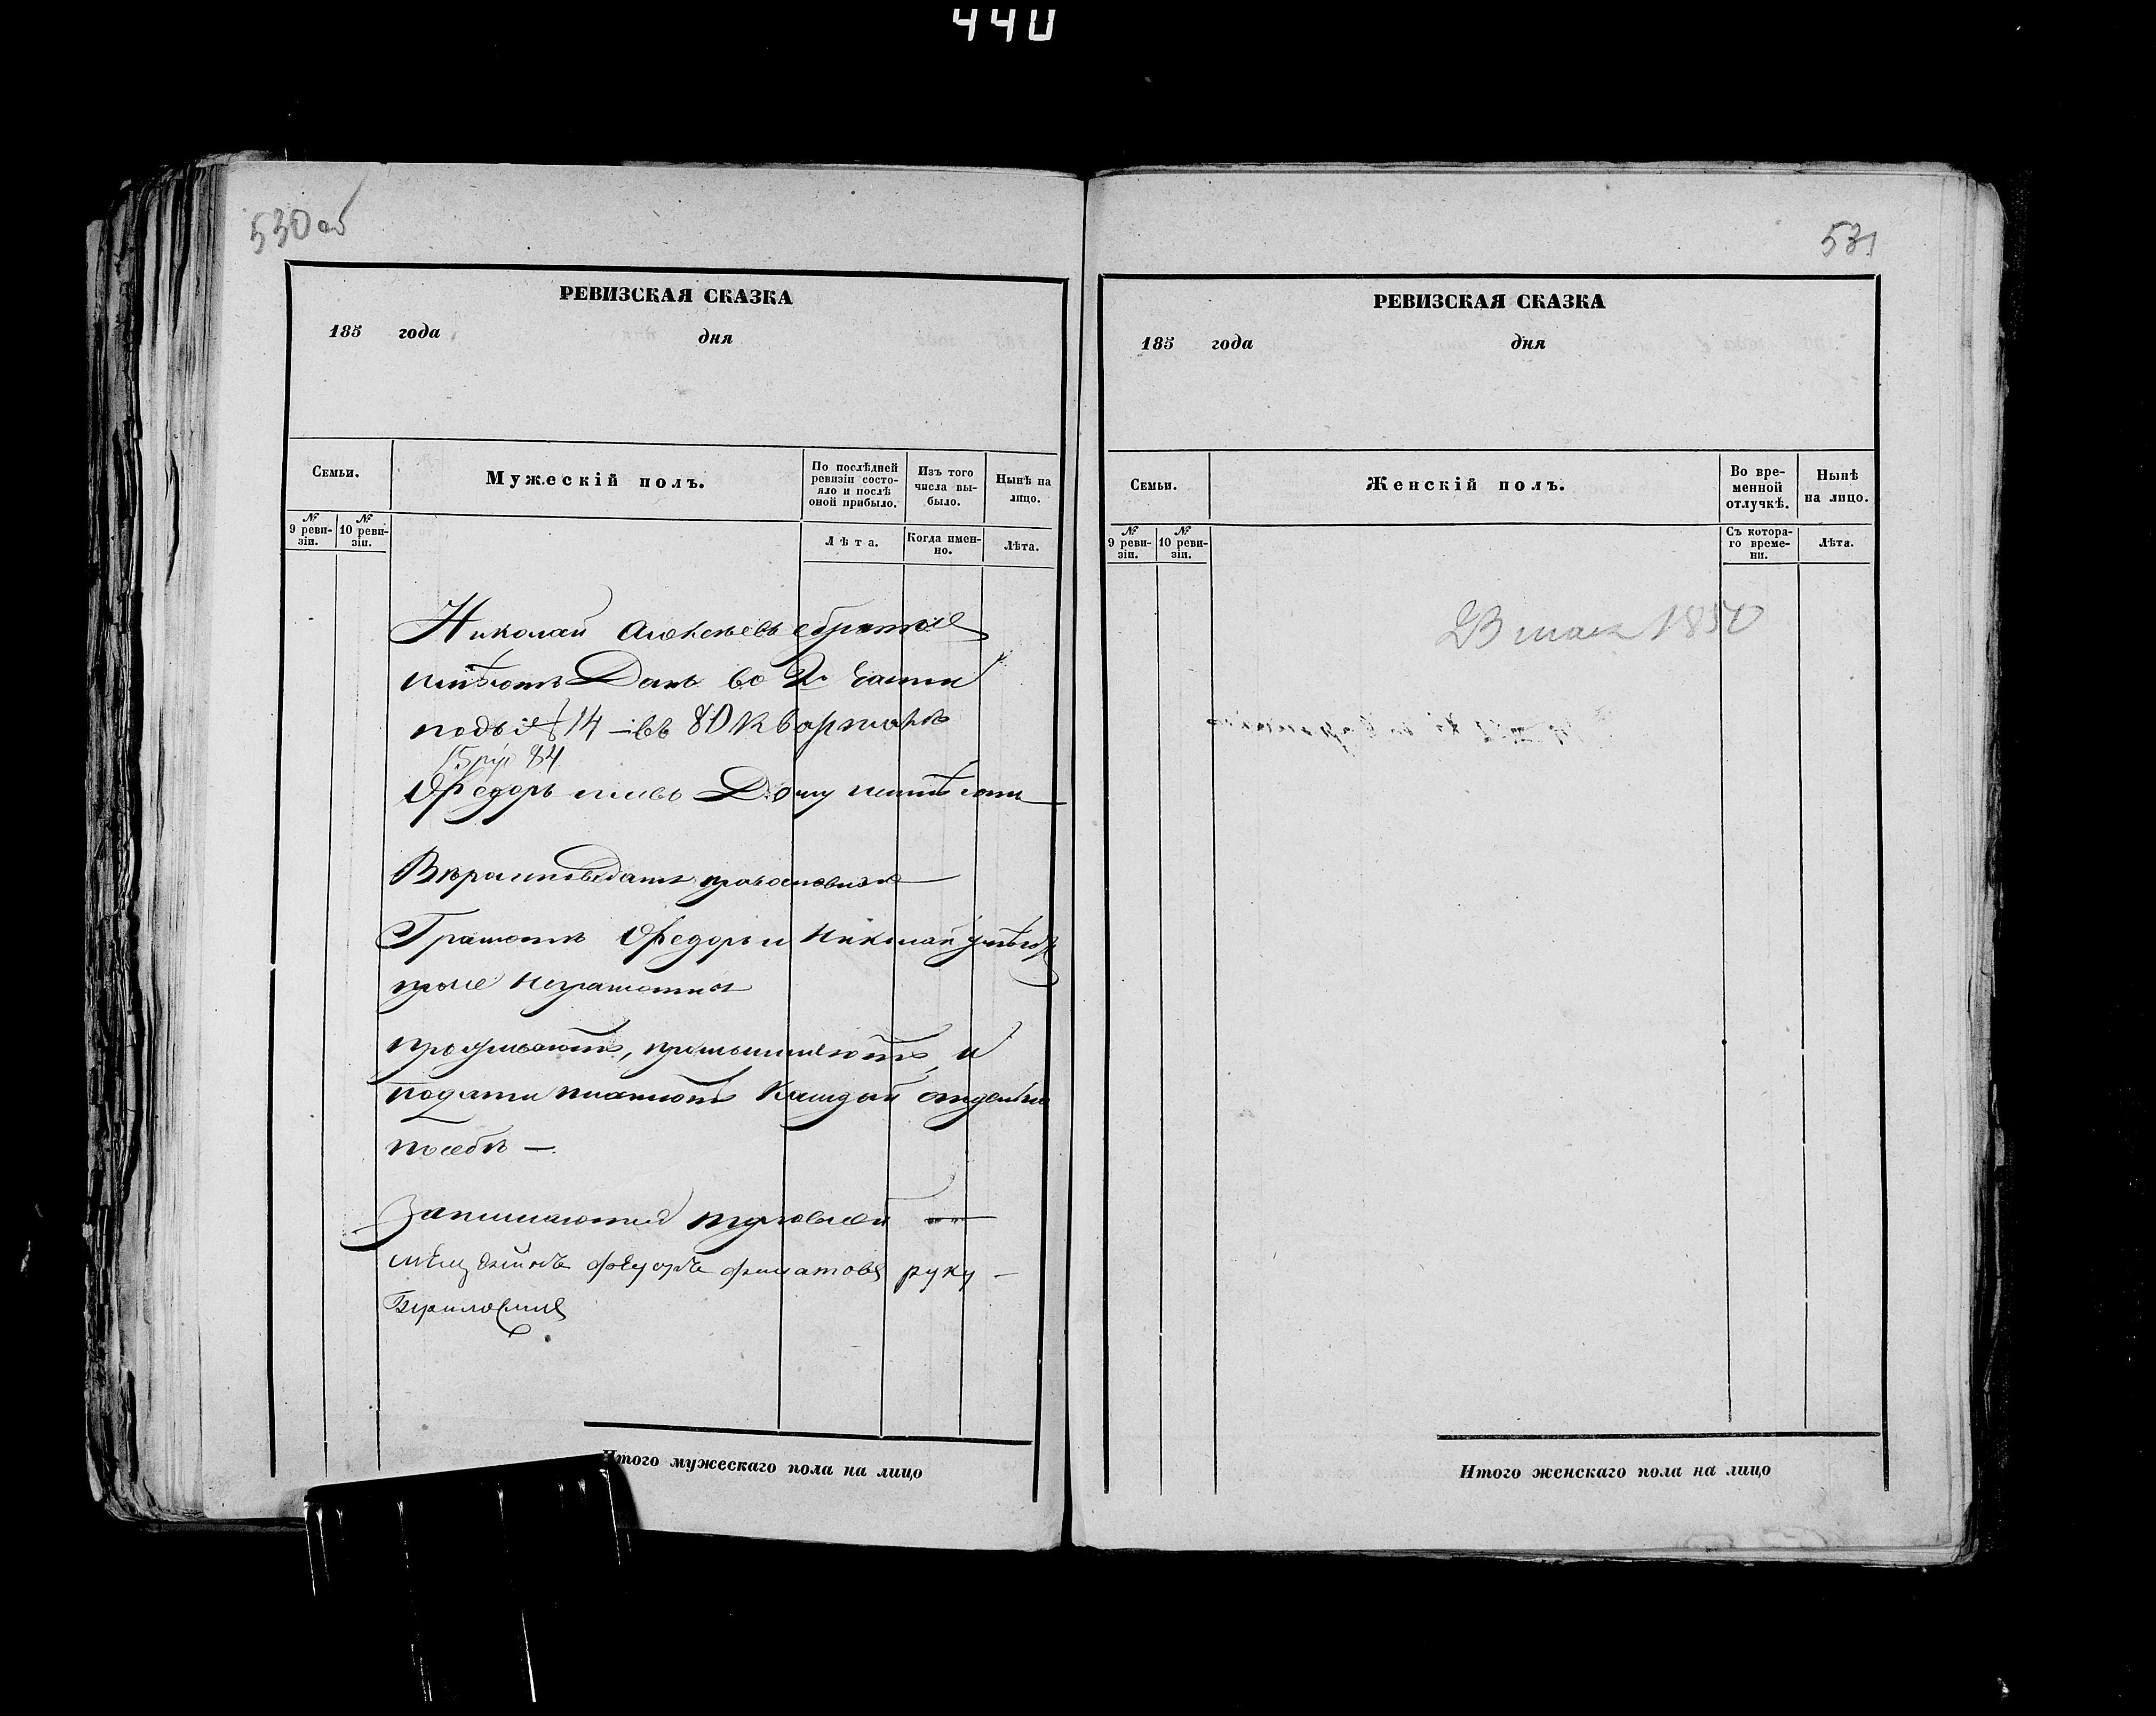 440
530 об
РЕВИЗСКАЯ СКАЗКА
185 года дня
Семьи.
Мужескій полъ.
По послѣдней ревизіи состояло и послѣ оной прибыло.
Изъ того числа выбыло.
Нынѣ на лицо.
№ 9 ревизіи.
№ 10 ревизіи.
Лѣта.
Когда именно.
Лѣта.
Николай Алексѣевъ
имѣютъ Домъ во 2й части
подъ № 14 – въ 80 кварталѣ
15 84
Федоръ Дому
православной
Грамотѣ Федоръ и Николай
прочіе неграмотны
проживаютъ, и
подати платютъ Каждый отдельно
по себѣ —
торговлей
мещенинъ федоръ филатовъ руку –
Приложилъ
Итого мужескаго пола на лицо
531
РЕВИЗСКАЯ СКАЗКА
185 года дня
Семьи.
Женскій полъ.
Во временной отлучкѣ.
Нынѣ на лицо.
№ 9 ревизіи.
№ 10 ревизіи.
Съ котораго времени.
Лѣта.
23 мая 1850
Итого женскаго пола на лицо